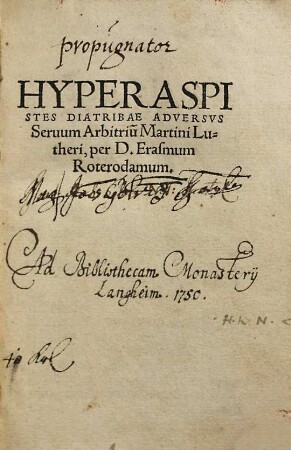 propugnator
HYPERASPI
STES DIATRIBAE ADVERSVS
Seruum Arbitriũ Martini Lu-
theri, per D. Erasmum
Roterodamum.
Ad Bibliothecam Monasterij
Langheim. 1750.
H. h. N.